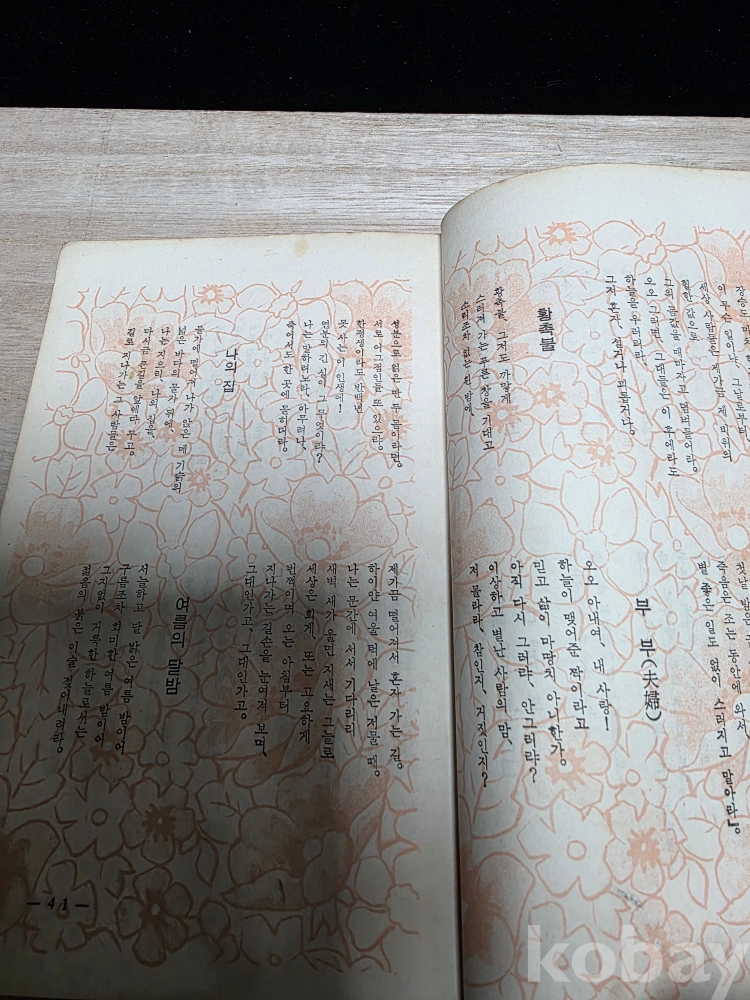 이 무슨 일이냐, 그날로부터
세상 사람들은 제가끔 제 비위의
헐한 값으로
그의 몸값을 매마자고 덤벼들어라.
오오 그러면, 그대들은 이 후에라도
하늘을 우러러라,
그저 혼자, 설거나 괴롭거나.
황촉불
황촉불, 그저도 까맣게
스러져 가는 푸른 창을 기대고
소리조차 없는 흰 밤에,
죽음은 조는 동안에 와서,
별 좋은 일도 없이 스러지고 말아라』
부 부(夫婦)
오오 아내여, 내 사랑!
하늘이 맺어준 짝이라고
믿고 삶이 마땅치 아니한가.
아직 다시 그러랴, 안그러랴?
이상하고 별난 사람의 맘,
저 몰라라, 참인지, 거짓인지?
성분으로 얽은 딴 두 몸이라면.
서로 어그점인들 또 있으랴.
한평생이라도 반백년
못 사는 이 인생에!
연분의 긴 실이 그 무엇이랴?
나는 말하려노라, 아무려나,
죽어서도 한 곳에 묻히더라.
나의 집
들가에 떨어져 나가 앉은 메기슭의
넓은 바다의 물가 뒤에,
나는 지으리, 나의 집을,
다시금 큰길을 앞에다 두고.
길로 지나가는 그 사람들은
제가끔 떨어져서 혼자 가는 길.
하이얀 여울 턱에 날은 저물 때.
나는 문간에 서서 기다리리
새벽 새가 울면 지새는 그늘로
세상은 희게, 또는 고요하게
번쩍이며 오는 아침부터
지나가는 길손을 눈여겨 보며,
그대인가고, 그대인가고.
여름의 달밤
서늘하고 달 밝은 여름 밤이여
구름조차 희미한 여름 밤이여
그지없이 거룩한 하늘로서는
젊음의 붉은 이슬 젖어내려라.
— 41 —
kobay